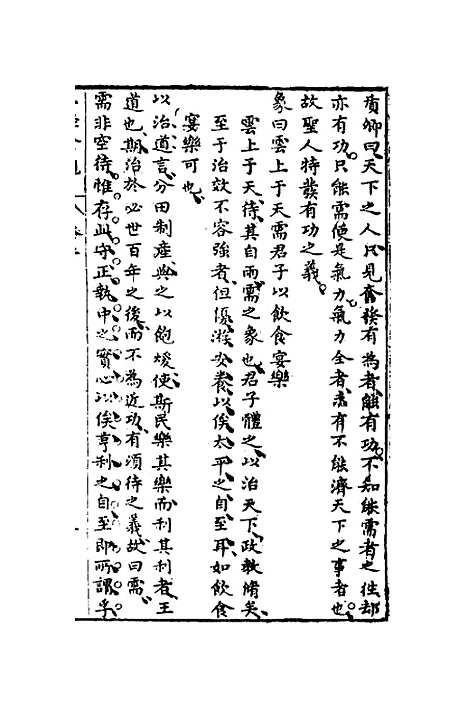 貢卿曰天下之人只見奮發有為者能有功不知能需者之往却
亦有功只能需便是氣力氣力全者未有不能濟天下之事者也
故聖人特發有功之義
象曰雲上于天需君子以飲食宴樂
雲上于天待其自雨需之象也君子體之以治天下政教脩矣
至于治效不容強者但優游安養以俟太平之自至耳如飲食
宴樂可也
以治道言分田制產與之以飽煖使斯民樂其樂而利其利者王
道也期治於必世百年之後而不為近功有須待之義故曰需
需非空待惟存此守正執中之實心以俟亨利之自至即所謂孚